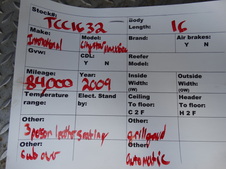 Stock#: TCC1632 Body Length: 16
Make: International Model: Brand: Air brakes: Y N
Gvw: CDL: Y N Reefer Model:
Mileage: 84000 Year: 2009 Inside Width: (IW) Outside Width: (OW)
Temperature range: Elect. Stand by: Ceiling To floor: C 2 F Header To floor: H 2 F
Other: 3 person leather seating Other: Other: grillguard Other:
cab over automatic